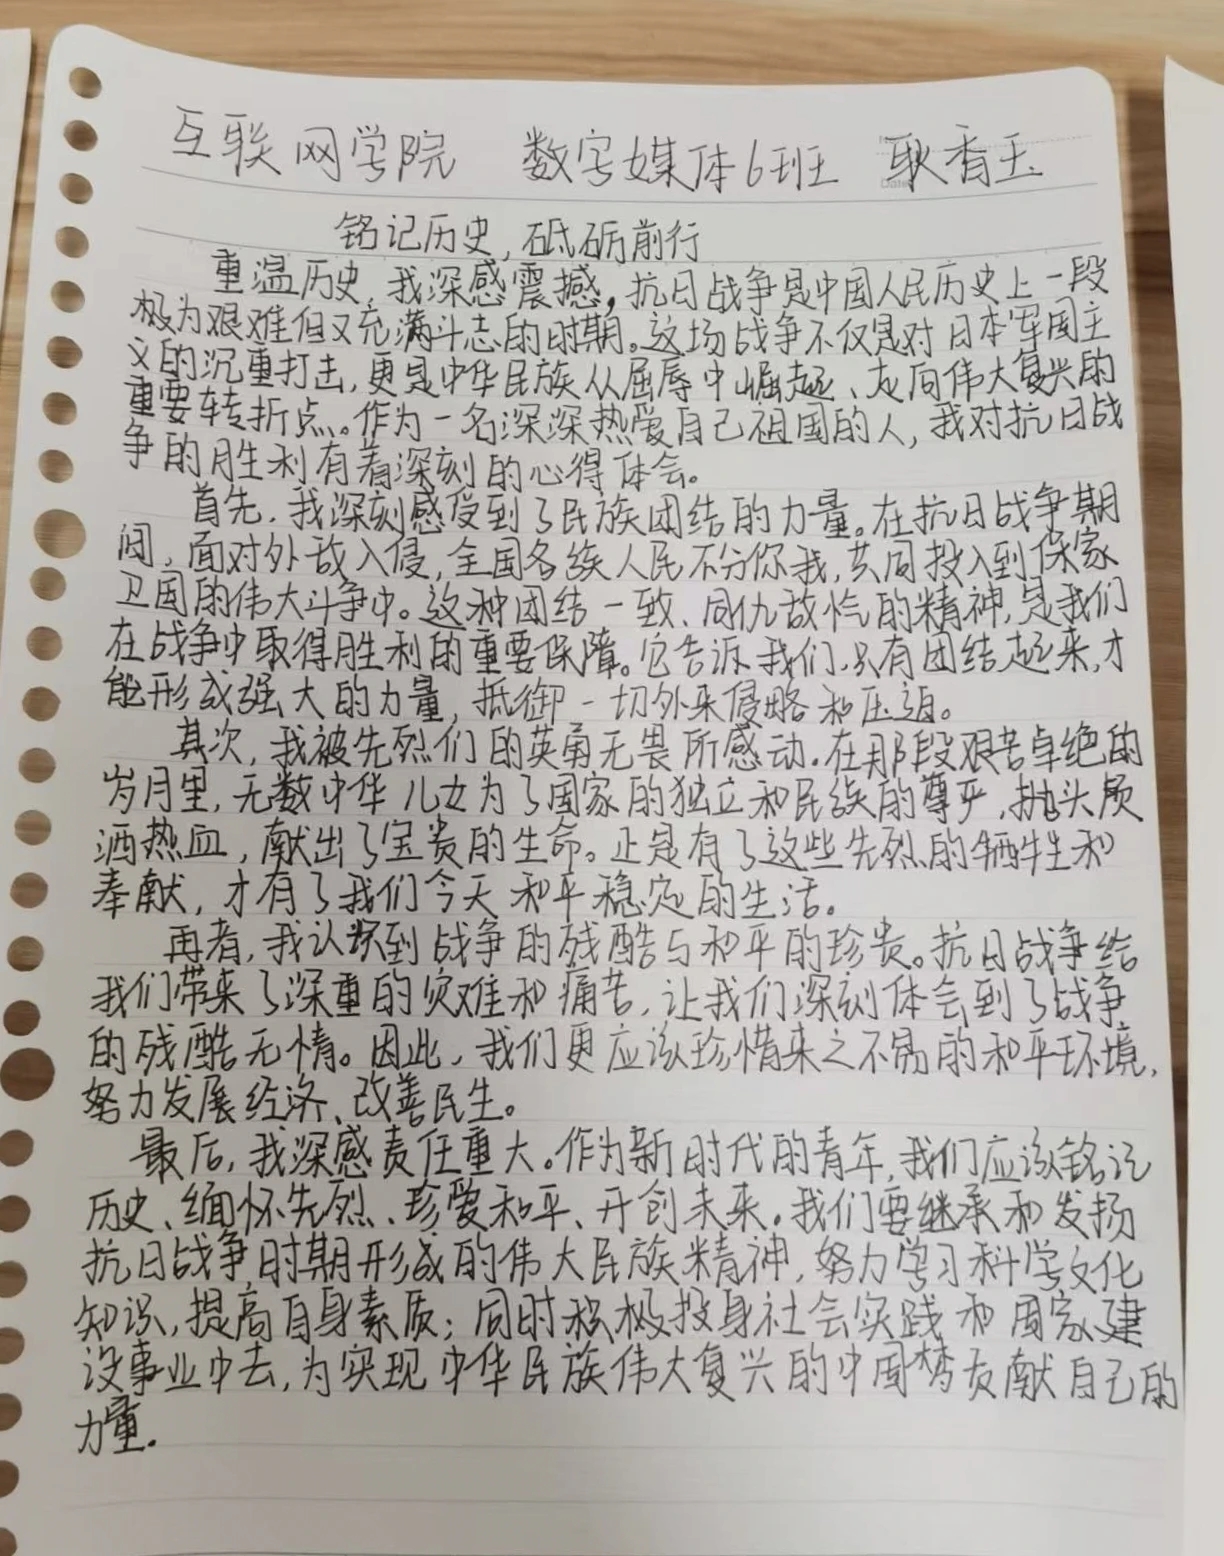 互联网学院 数字媒体6班 耿香玉
铭记历史,砥砺前行
重温历史,我深感震撼,抗日战争是中国人民历史上一段
极为艰难但又充满斗志的时期。这场战争不仅是对日本军国主
义的沉重打击,更是中华民族从屈辱中崛起、走向伟大复兴的
重要转折点。作为一名深深热爱自己祖国的人,我对抗日战
争的胜利有着深刻的心得体会。
首先,我深刻感受到了民族团结的力量。在抗日战争期
间,面对外敌入侵,全国各族人民不分你我,共同投入到保家
卫国的伟大斗争中。这种团结一致、同仇敌忾的精神,是我们
在战争中取得胜利的重要保障。它告诉我们,只有团结起来,才
能形成强大的力量,抵御一切外来侵略和压迫。
其次,我被先烈们的英勇无畏所感动.在那段艰苦卓绝的
岁月里,无数中华儿女为了国家的独立和民族的尊严,抛头颅
洒热血,献出了宝贵的生命。正是有了这些先烈的牺牲和
奉献,才有了我们今天和平稳定的生活。
再者,我认识到战争的残酷与和平的珍贵。抗日战争给
我们带来了深重的灾难和痛苦,让我们深刻体会到了战争
的残酷无情。因此,我们更应该珍惜来之不易的和平环境,
努力发展经济、改善民生。
最后,我深感责任重大。作为新时代的青年,我们应该铭记
历史、缅怀先烈、珍爱和平、开创未来.我们要继承和发扬
抗日战争时期形成的伟大民族精神,努力学习科学文化
知识,提高自身素质;同时积极投身社会实践和国家建
设事业中去,为实现中华民族伟大复兴的中国梦贡献自己的
力量.